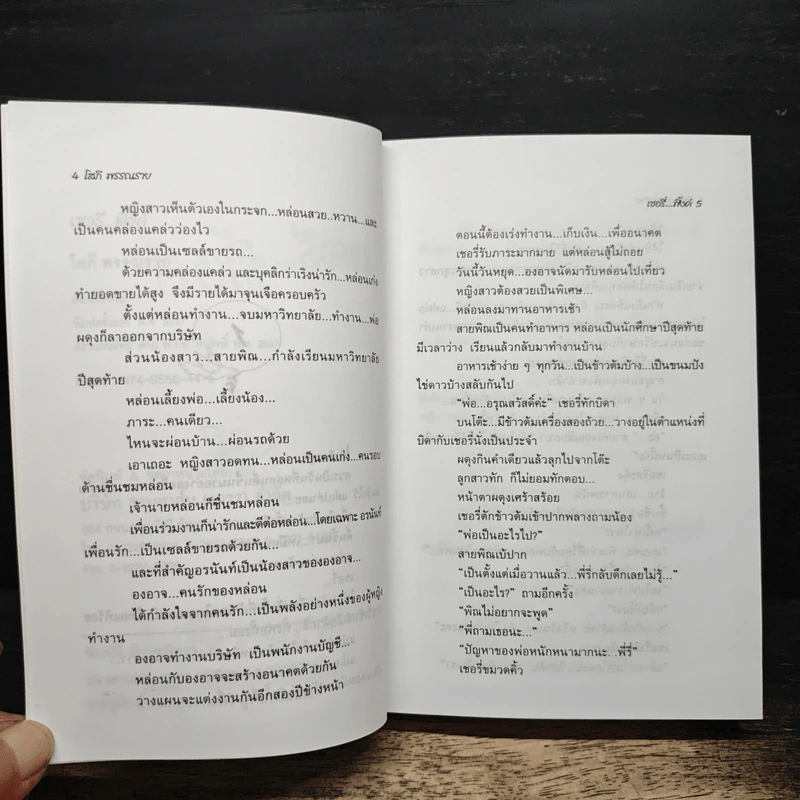 4 โสภี พรรณราย
หญิงสาวเห็นตัวเองในกระจก...หล่อนสวย..หวาน...และ
เป็นคนคล่องแคล่วว่องไว
หล่อนเป็นเซลล์ขายรถ...
ด้วยความคล่องแคล่ว และบุคลิกร่าเริงน่ารัก...หล่อนเก่ง
ทำยอดขายได้สูง จึงมีรายได้มาจุนเจือครอบครัว
ตั้งแต่หล่อนทำงาน...จบมหาวิทยาลัย...ทำงาน...พ่อ
ผดุงก็ลาออกจากบริษัท
ส่วนน้องสาว...สายพิณ...กำลังเรียนมหาวิทยาลัย
ปีสุดท้าย
หล่อนเลี้ยงพ่อ...เลี้ยงน้อง...
ภาระ...คนเดียว...
ไหนจะผ่อนบ้าน...ผ่อนรถด้วย
เอาเถอะ หญิงสาวอดทน...หล่อนเป็นคนเก่ง...คนรอบ
ด้านชื่นชมหล่อน
เจ้านายหล่อนก็ชื่นชมหล่อน
เพื่อนร่วมงานก็น่ารักและดีต่อหล่อน...โดยเฉพาะ อรนันท์
เพื่อนรัก...เป็นเซลล์ขายรถด้วยกัน...
และที่สำคัญอรนันท์เป็นน้องสาวขององอาจ...
องอาจ...คนรักของหล่อน
ได้กำลังใจจากคนรัก...เป็นพลังอย่างหนึ่งของผู้หญิง
ทำงาน
องอาจทำงานบริษัท เป็นพนักงานบัญชี...
หล่อนกับองอาจจะสร้างอนาคตด้วยกัน
วางแผนจะแต่งงานกันอีกสองปีข้างหน้า
เชอรี่...สิ้งค์ 5
ตอนนี้ต้องเร่งทำงาน...เก็บเงิน...เพื่ออนาคต
เชอรี่รับภาระมากมาย แต่หล่อนสู้ไม่ถอย
วันนี้วันหยุด...องอาจนัดมารับหล่อนไปเที่ยว
หญิงสาวต้องสวยเป็นพิเศษ...
หล่อนลงมาทานอาหารเช้า
สายพิณเป็นคนทำอาหาร หล่อนเป็นนักศึกษาปีสุดท้าย
มีเวลาว่าง เรียนแล้วกลับมาทำงานบ้าน
อาหารเช้าง่าย ๆ ทุกวัน...เป็นข้าวต้มบ้าง...เป็นขนมปัง
ไข่ดาวบ้างสลับกันไป
“พ่อ...อรุณสวัสดิ์ค่ะ” เชอรี่ทักบิดา
บนโต๊ะ...มีข้าวต้มเครื่องสองถ้วย...วางอยู่ในตำแหน่งที่
บิดากับเชอรี่นั่งเป็นประจำ
ผดุงกินคำเดียวแล้วลุกไปจากโต๊ะ
ลูกสาวทัก ก็ไม่ยอมทักตอบ...
หน้าตาผดุงเศร้าสร้อย
เชอรี่ตักข้าวต้มเข้าปากพลางถามน้อง
“พ่อเป็นอะไรไป?”
สายพิณเบ้ปาก
“เป็นตั้งแต่เมื่อวานแล้ว...พี่รี่กลับดึกเลยไม่รู้...”
“เป็นอะไร?” ถามอีกครั้ง
“พิณไม่อยากจะพูด”
“พี่ถามเธอนะ...”
“ปัญหาของพ่อหนักหนามากนะ...พี่รี่”
เชอรี่ขมวดคิ้ว